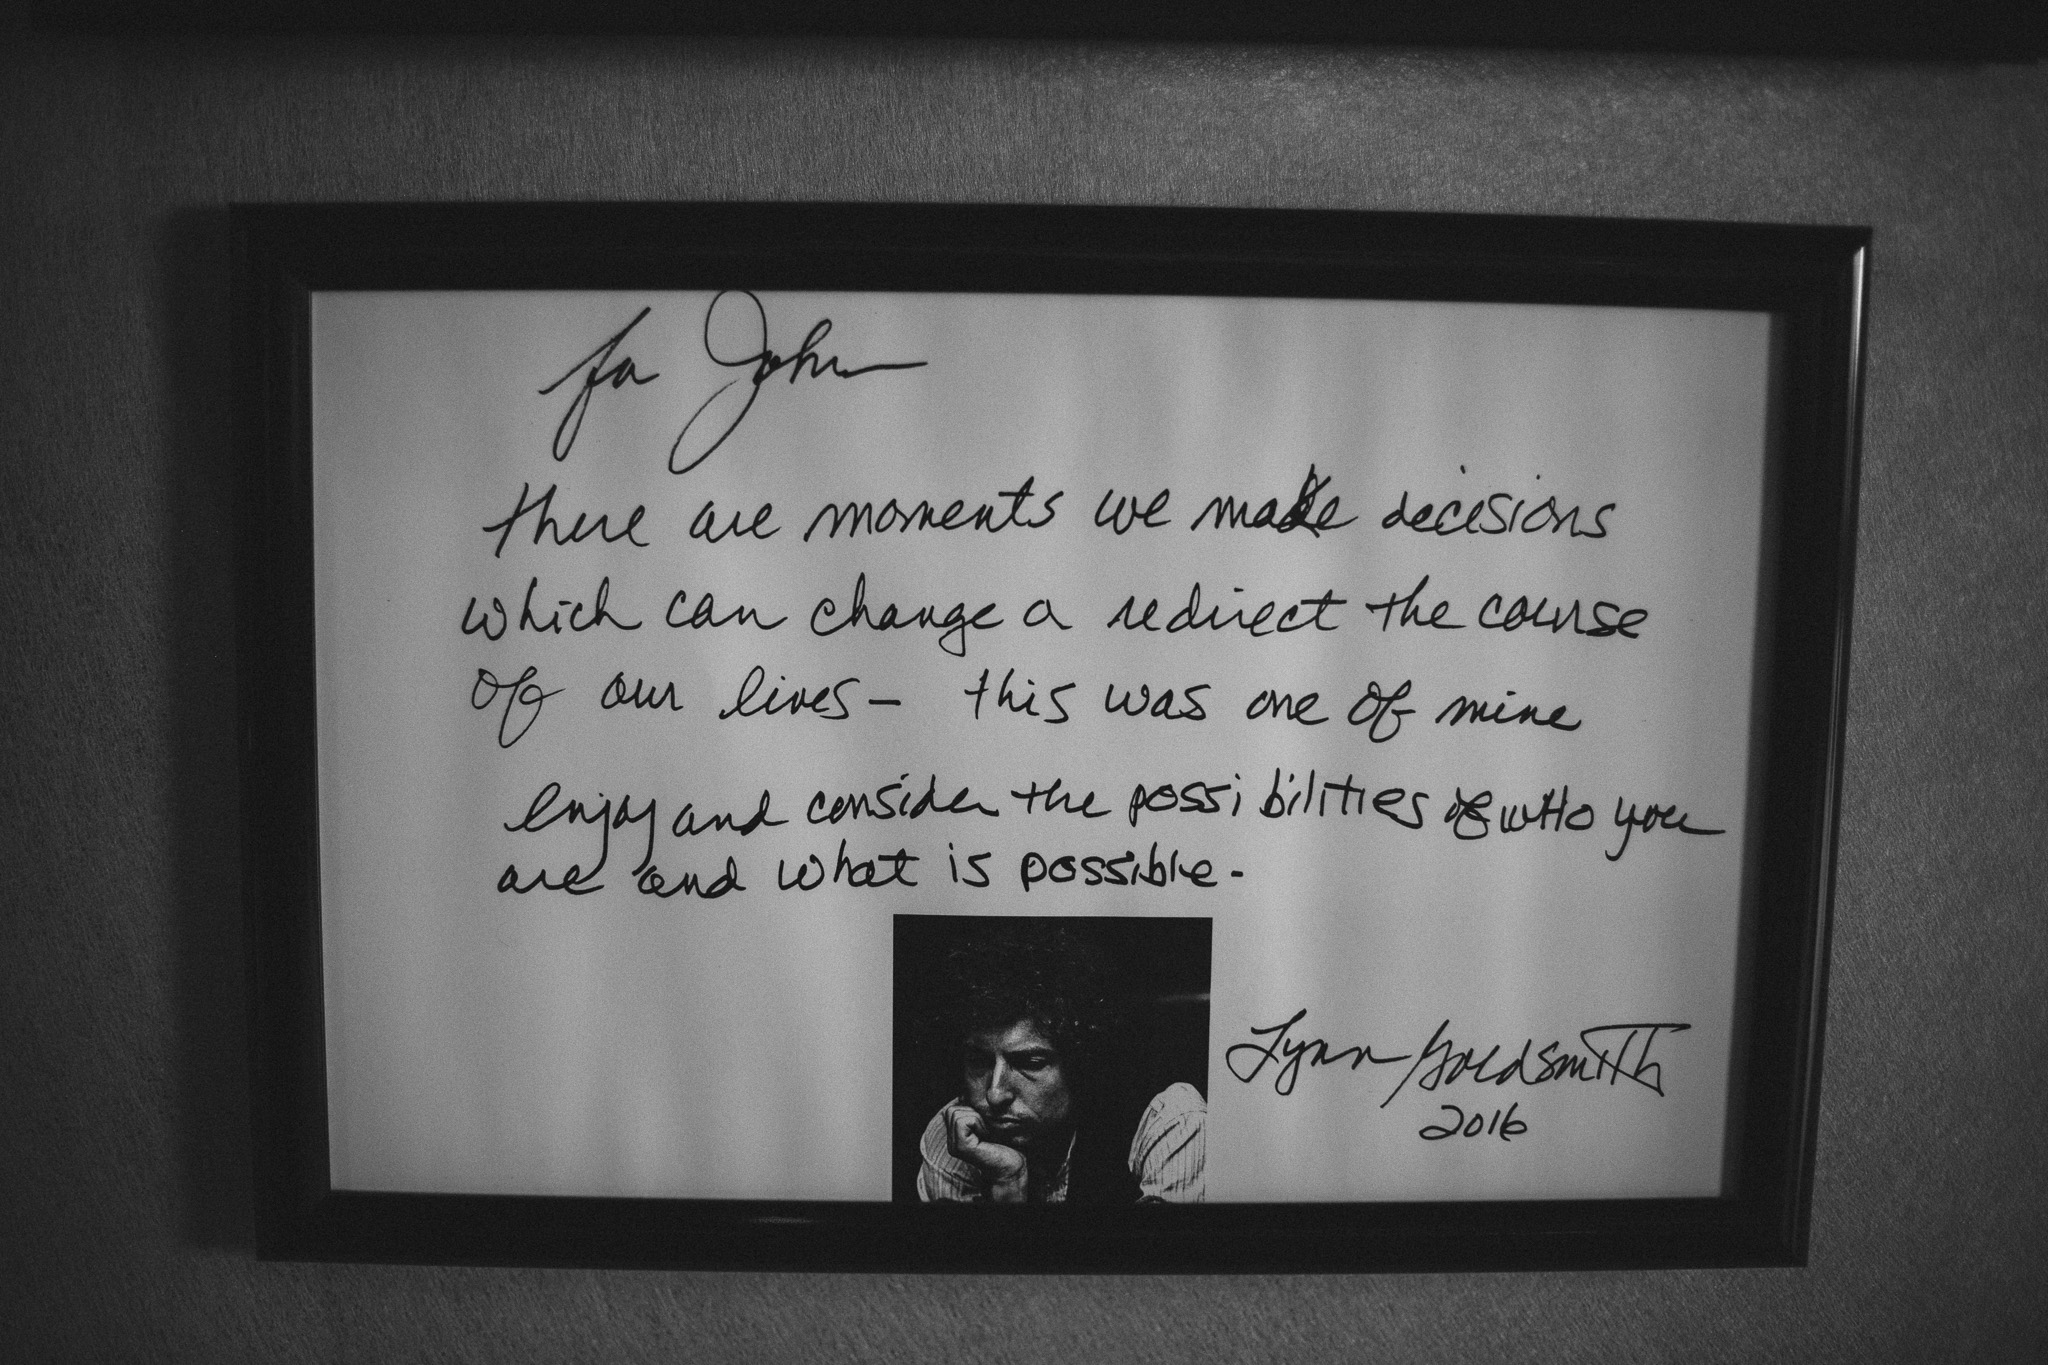 for John
there are moments we make decisions
which can change or redirect the course
of our lives – this was one of mine
enjoy and consider the possibilities of who you
are and what is possible.
Lynn Goldsmith
2016